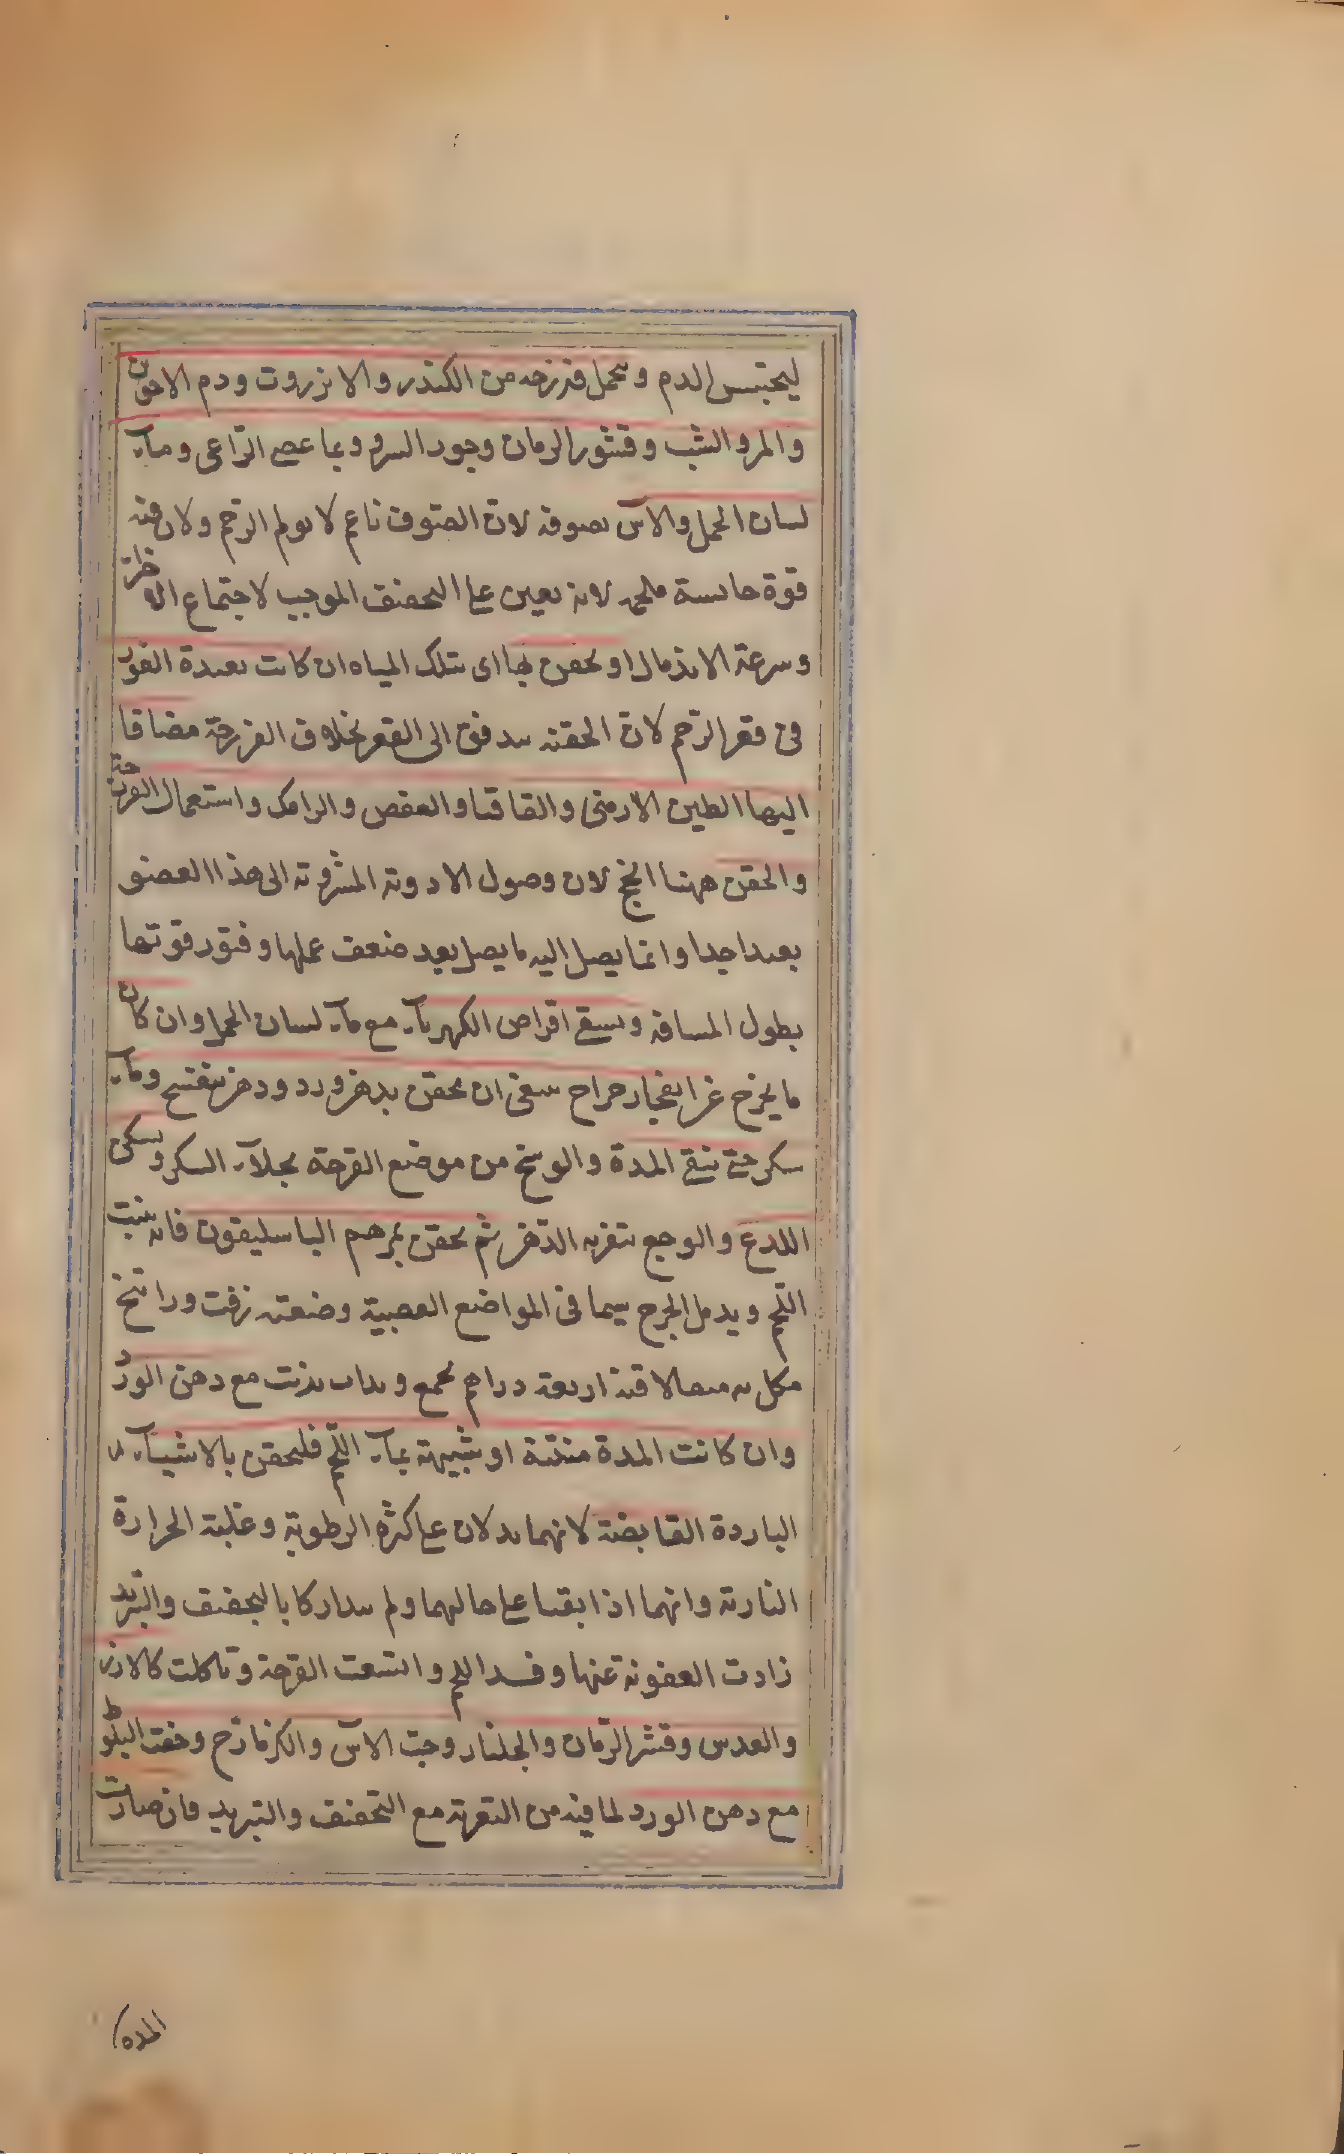 ليحتبس الدم وتحمل فرزجه من الكندر والانزروت ودم الاخوين
والمر والشب وقشور الرمان وجوز السرو وبماء عصى الراعى ومآء
لسان الحمل والآس بصوفه لان الصوف ناعم لا يولم الرحم ولان فيه
قوة حابسة ملحمه لانه يعين على التجفيف الموجب لاجتماع
وسرعة الاندمال او تحقن بها اى بتلك المياه ان كانت بعيدة الغور
فى قعر الرحم لان الحقنه تندفق الى القعر بخلاف الفرزجة مضافا
اليها الطين الارمنى والقاقيا والعفص والرامك واستعمال الفرزجة
والحقن ههنا انجح لان وصول الادوية المشروبه الى هذا العضو
بعيد جدا وانما يصل اليه ما يصل بعد ضعف عملها وفتور قوتها
بطول المسافه ويسقى اقراص الكهربآء مع مآء لسان الحمل وان كان
ما يخرج عن انفجار خراج ينبغى ان يحقن بدهن ورد ودهن بنفسج ومآء
سكر حتى ينقى المدة والوسخ من موضع القرحة بجلآء السكر ويسكن
اللذع والوجع بتغريه الدهن ثم يحقن بمرهم الباسليقون فانه ينبت
اللحم ويدمل الجرح سيما فى المواضع العصبية وصنعته زفت وراتينج
مكل بالاقيه اربعة دراهم يجمع ويذاب بزيت مع دهن الورد
وان كانت المدة منتنة او شبيهة بمآء اللحم فليحقن بالاشيآء
الباردة القابضة لانهما يدلان على كثرة الرطوبة وغلبة الحرارة
النارية وانهما اذا بقيا على حالهما ولم يتداركا بالتجفيف والتبريد
زادت العفونة عنها وفسد اللحم واتسعت القرحة وتاكلت كالارز
والعدس وقشر الرمان والجلنار وحب الآس والكزمازج وجفت البلوط
مع دهن الورد لما فيه من التغرية مع التجفيف والتبريد فان صارت
المده